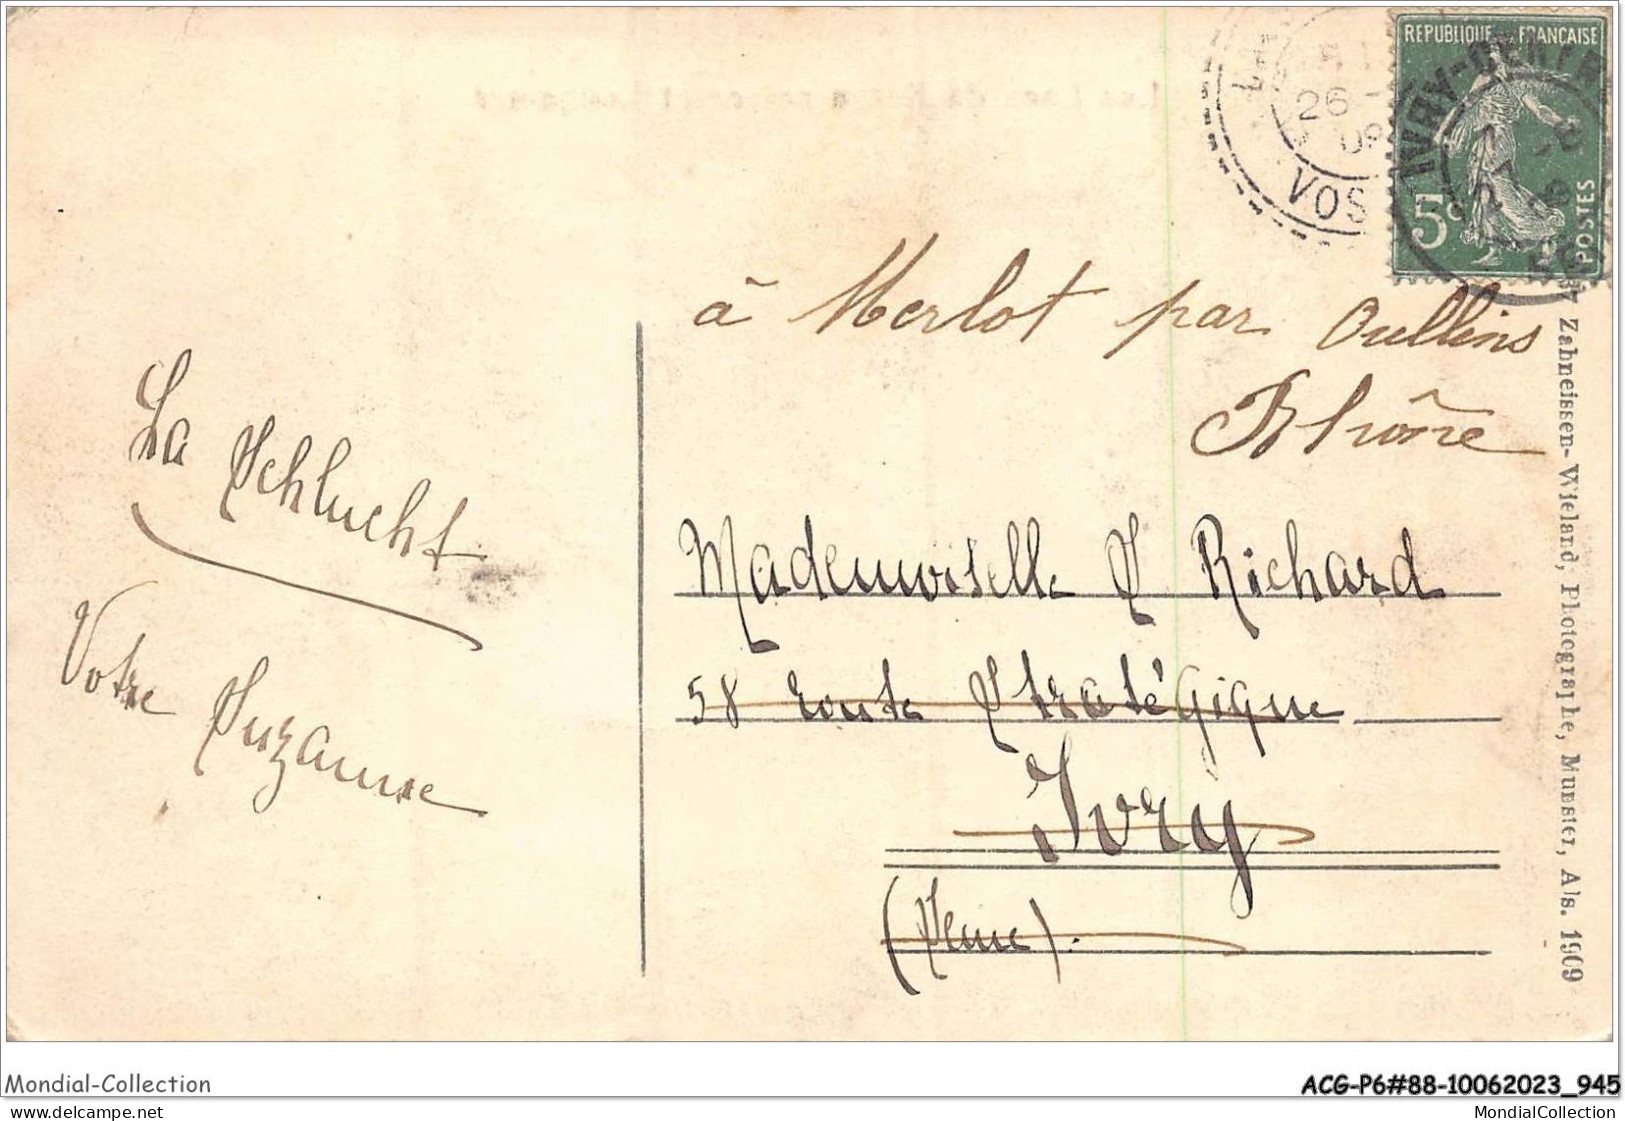 RÉPUBLIQUE FRANÇAISE
5c
POSTES
26
VOS
IVRY-CENTR
à Merlot par Oullins
Rhône
La Schlucht
Votre Suzanne
Mademoiselle S Richard
58 route Stratégique
Ivry
(Seine).
Zahneissen-Wieland, Photographe, Munster, Als. 1909
Mondial-Collection
ACG-P6#88-10062023_945
www.delcampe.net
MondialCollection